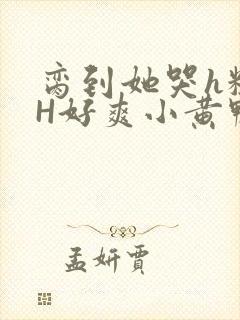 脔到她哭h粗
H好爽小黄鸭
孟妍賈